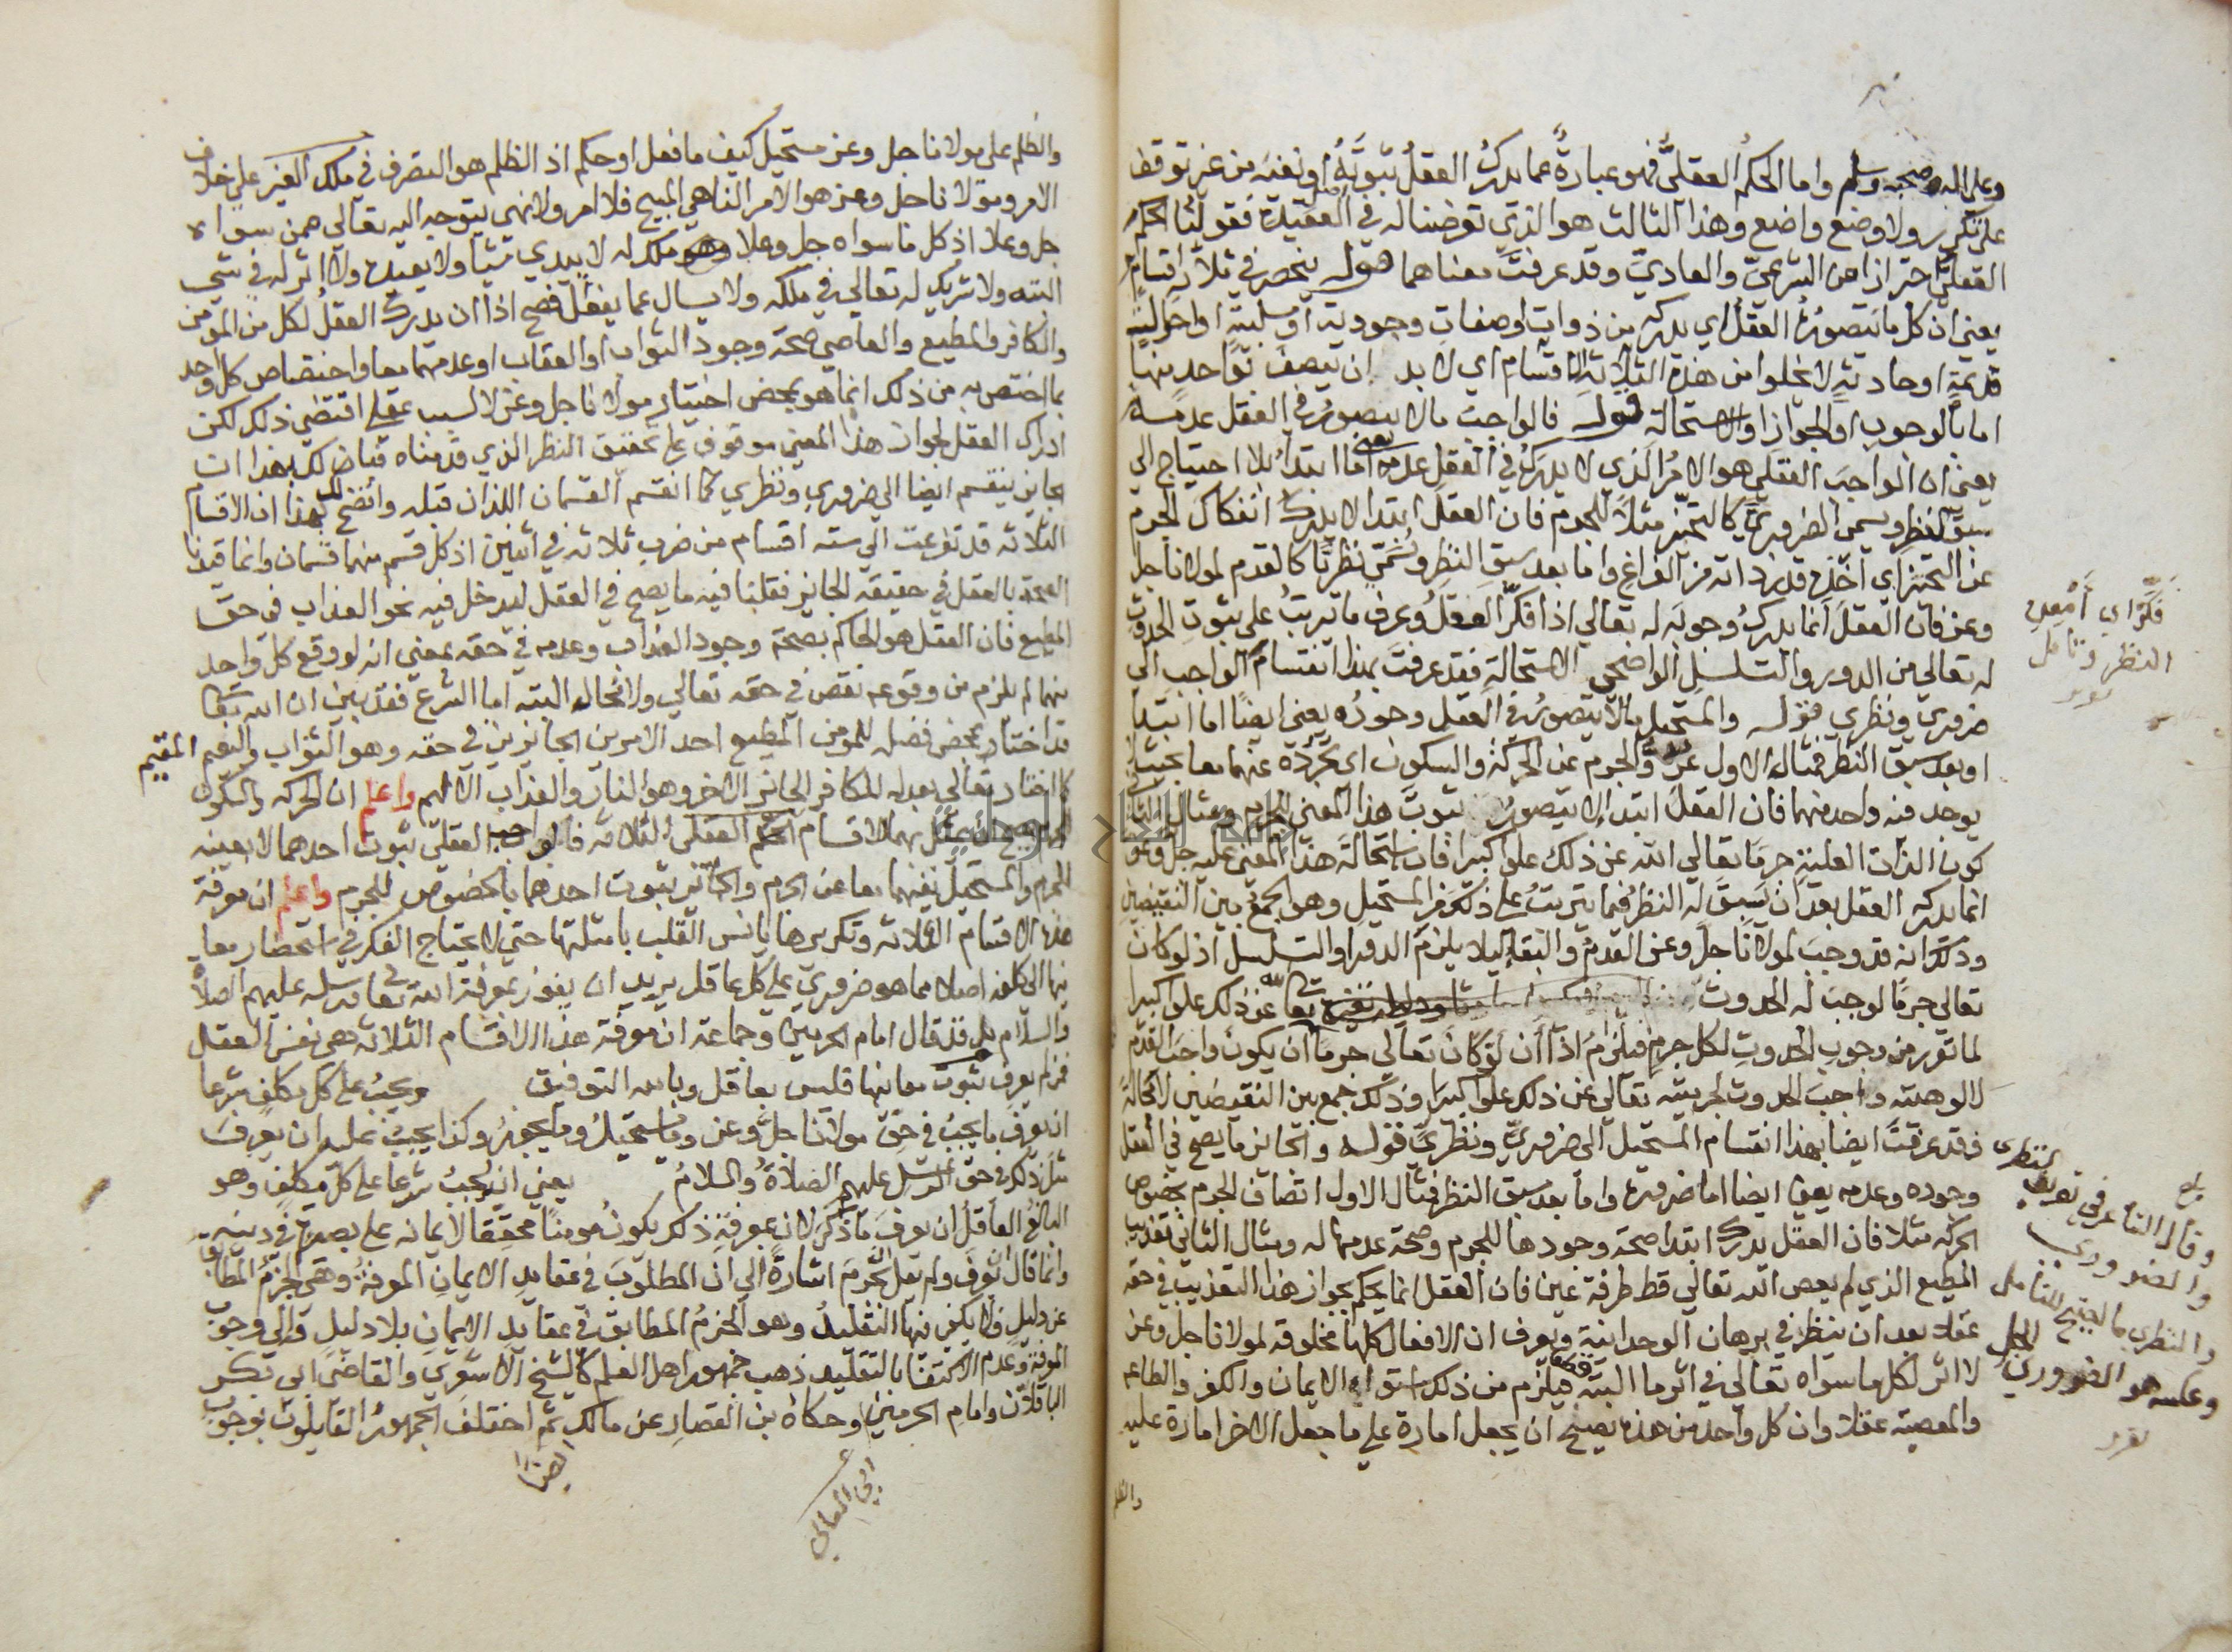 وعلى اله وصحبه وسلم واما الحكم العقلي فهو عبارة عما يدرك العقل ثبوته او نفيه من غير توقف
على تكرر ولا وضع واضع وهذا الثالث هو الذي تعرضنا له في اصل العقيدة فقولنا الحكم
العقلي احترازا من الشرعي والعادي وقد عرفت معناهما قوله ينحصر في ثلاثة اقسام
يعني ان كل ما يتصوره العقل اي يدركه من ذوات او صفات وجودية او سلبية او احوالية
قديمة او حادثة لا يخلوا من هذه الثلاثة الاقسام اي لا بد ان يتصف بواحد منها
اما بالوجوب او الجواز او الاستحالة قوله فالواجب ما لا يتصور في العقل عدمه
يعني ان الواجب العقلي هو الامر الذي لا يدرك في العقل عدمه يعني اما ابتداء بلا احتياج الى
سبق النظر ويسمى الضروري كالتحيز مثلا للجرم فان العقل ابتدا لا يدرك انفكاك الجرم
عن التحيز اي اخذه قدر ذاته من الفراغ واما بعد سبق النظر ويسمى نظريا كالقدم لمولانا جل
وعز فان العقل انما يدرك وجوبه له تعالى اذا فكر العقل وعرف ما يترتب على ثبوت الحدوث
له تعالى من الدور والتسلسل الواضحي الاستحالة فقد عرفت بهذا انقسام الواجب الى
ضروري ونظري قوله والمستحيل ما لا يتصور في العقل وجوده يعني ايضا اما ابتدا
او بعد سبق النظر فمثال الاول عرو الجرم عن الحركة والسكون اي تجرده عنهما معا بحيث لا
يوجد فيه واحد منهما فان العقل ابتدا لا يتصور ثبوت هذا المعنى للجرم ومثال الثاني
كون الذات العلية جرما تعالى الله عن ذلك علوا كبيرا فان استحالة هذا المعنى عليه جل وعز
انما يدركه العقل بعد ان يسبق له النظر فيما يترتب على ذلك من المستحيل وهو الجمع بين النقيضين
وذلك انه قد وجب لمولانا جل وعز القدم والبقا ليلا يلزم الدور او التسلسل اذ لو كان
تعالى جرما لوجب له الحدوث تعالى الله عن ذلك علوا كبيرا
لما تقرر من وجوب الحدوث لكل جرم فيلزم اذا ان لو كان تعالى جرما ان يكون واجب القدم
لالوهيته واجب الحدوث لجرميته تعالى عن ذلك علوا كبيرا وذلك جمع بين النقيضين لا محالة
فقد عرفت ايضا بهذا انقسام المستحيل الى ضروري ونظري قوله والجايز ما يصح في العقل
وجوده وعدمه يعني ايضا اما ضرورة واما بعد سبق النظر فمثال الاول اتصاف الجرم بخصوص
الحركه مثلا فان العقل يدرك ابتدا صحة وجودها للجرم وصحة عدمها له ومثال الثاني تعذيب
المطيع الذي لم يعص الله تعالى قط طرفة عين فان العقل انما يحكم بجواز هذا التعذيب في حقه
عقلا بعد ان ينظر في برهان الوحدانية ويعرف ان الافعال كلها مخلوقة لمولانا جل وعز
لا اثر لكل ما سواه تعالى في اثر ما البتة فيلزم من ذلك استواء الايمان والكفر والطاعه
والمعصية عقلا وان كل واحد من هذه يصلح ان يجعل امارة على ما جعل الاخر امارة عليه
والظلم
فكر اي امعن
النظر وتامل
وقال التاء في تعريف النظري
والضروري
والنظري ما احتيج للتامل
وعكسه هو الضروري الجلي
والظلم على مولانا جل وعز مستحيل كيف ما فعل او حكم اذ الظلم هو التصرف في ملك الغير على خلاف
الامر ومولانا جل وعز هو الآمر الناهي المبيح فلا امر ولا نهي يتوجه اليه تعالى ممن سواه
جل وعلا اذ كل ما سواه جل وعلا وهو ملك له لا يبدي شيا ولا يعيده ولا اثر له في شي
البته ولا شريك له تعالى في ملكه ولا يسال عما يفعل فصح اذا ان يدرك العقل لكل من المومن
والكافر والمطيع والعاصي صحة وجود الثواب او العقاب او عدمهما معا واختصاص كل واحد
بما اختص به من ذلك انما هو بمحض اختيار مولانا جل وعز لا لسبب عقلي اقتضى ذلك لكن
ادراك العقل لجواز هذا المعنى موقوف على تحقيق النظر الذي قدمناه فبان لك بهذا ان
الجايز ينقسم ايضا الى ضروري ونظري كما انقسم القسمان اللذان قبله واتضح لك بهذا ان الاقسام
الثلاثه قد تفرعت الى سته اقسام من ضرب ثلاثه في اثنين اذ كل قسم منهما قسمان وانما قيدنا
الصحة بالعقل في حقيقة الجايز فقلنا فيه ما يصح في العقل ليدخل فيه نحو العذاب في حق
المطيع فان العقل هو الحاكم بصحة وجود العذاب وعدمه في حقه بمعنى انه لو وقع كل واحد
منهما لم يلزم من وقوعه نقص في حقه تعالى ولا محال البته اما الشرع فقد بين ان الله تعالى
قد اختار بمحض فضله للمومن المطيع احد الامرين الجايزين في حقه وهو الثواب والنعيم المقيم
كما اختار تعالى بعدله للكافر الجايز الاخر وهو النار والعذاب الاليم واعلم ان الحركه والسكون
للجرم يصح ان يمثل بهما لاقسام الحكم العقلي الثلاثة فالواجب العقلي ثبوت احدهما لا بعينه
للجرم والمستحيل نفيهما معا عن الجرم والجائز ثبوت احدهما بالخصوص للجرم واعلم ان معرفة
هذه الاقسام الثلاثه وتكريرها تانيس القلب بامثلتها حتى لا يحتاج الفكر في استحضار معا
نيها الى كلفه اصلا مما هو ضروري على كل عاقل يريد ان يفوز بمعرفة الله تعالى ورسله عليهم الصلاة
والسلام بل قد قال امام الحرمين وجماعة ان معرفة هذه الاقسام الثلاثه هي نفس العقل
فمن لم يعرف ثبوت معانيها فليس بعاقل وبالله التوفيق ويجب على كل مكلف شرعا
ان يعرف ما يجب في حق مولانا جل وعز وما يستحيل وما يجوز وكذا يجب عليه ان يعرف
مثل ذلك في حق الرسل عليهم الصلاة والسلام يعني انه يجب شرعا على كل مكلف وهو
البالغ العاقل ان يعرف ما ذكر لان بمعرفة ذلك يكون مومنا محققا لايمانه على بصيرة في دينه
وانما قال يعرف ولم يقل يجزم اشارة الى ان المطلوب في عقايد الايمان المعرفة وهي الجزم المطابق
عن دليل ولا يكفي فيها التقليد وهو الجزم المطابق في عقايد الايمان بلا دليل والى وجوب
المعرفة وعدم الاكتفا بالتقليد ذهب جمهور اهل العلم كالشيخ الاشعري والقاضي ابي بكر
الباقلاني وامام الحرمين وحكاه بن القصار عن مالك ثم اختلف الجمهور القايلون بوجوب
ايضا
ابي المعالي